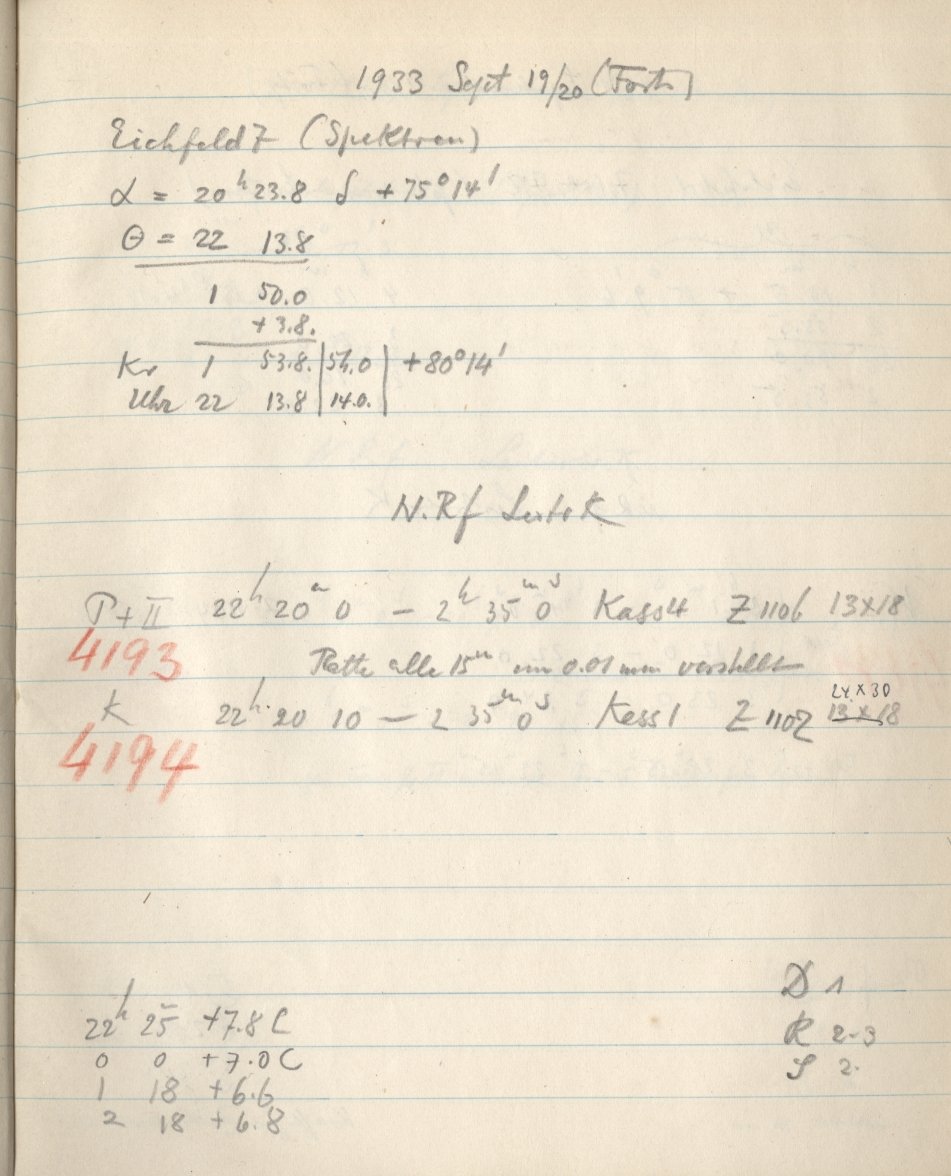 1933 Sept 19/20 (Forts)
Eichfeld 7 (Spektren)
α = 20ʰ 23.8 δ +75°14'
Θ = 22 13.8
1 50.0
+3.8.
Kr 1 53.8. | 54.0 | +80°14'
Uhr 22 13.8 | 14.0. |
N. Rf
P + II 22ʰ 20ᵐ 0 – 2ʰ 35ᵐ 0ˢ Kass 4 Z 1106 13×18
4193 Platte alle 15ᵐ um 0.01 mm verstellt
24×30
K 22ʰ 20 10 – 2 35ᵐ 0ˢ Kass 1 Z 1102 13×18
4194
D 1
22ʰ 25 +7.8 C
R 2-3
0 0 +7.0 C
S 2.
1 18 +6.6
2 18 +6.8